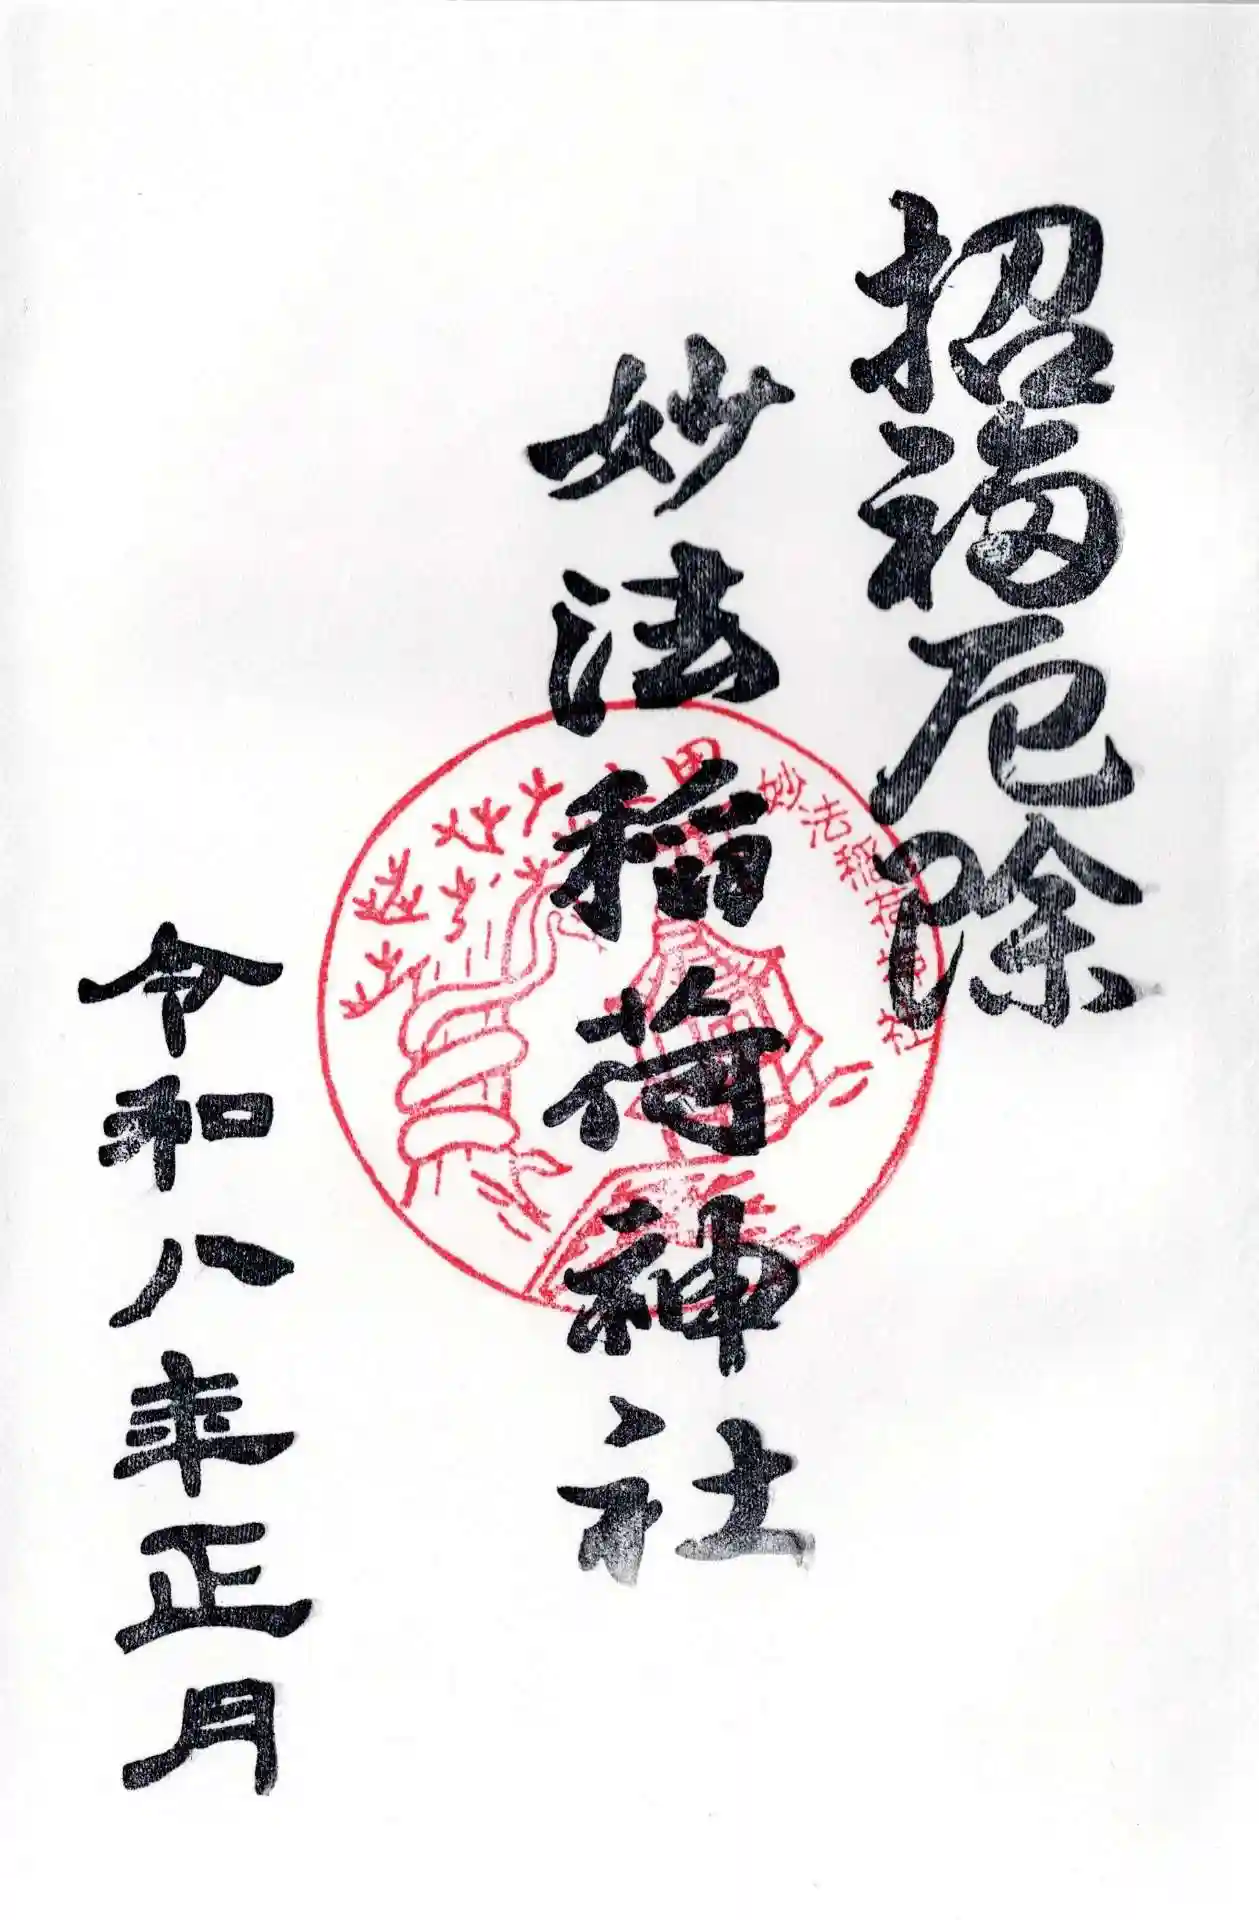 招福厄除
妙法稲荷神社
令和八年正月
妙法稲荷神社